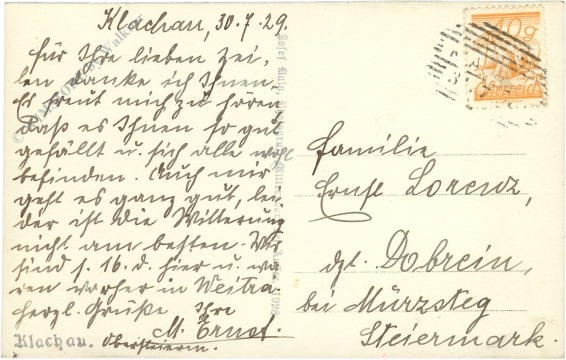 Klachau, 30.7.29.
Für Ihre lieben Zei-
len danke ich Ihnen.
Es freut mich zu hören
daß es Ihnen so gut
gefällt u. sich alle wohl
befinden. Auch mir
geht es ganz gut, lei-
der ist die Witterung
nicht am besten. Wir
sind s. 16. d. hier u. wa-
ren vorher in Weitra.
Herzl. Grüße Ihre
M. Ernst.
Klachau. Obersteierm.
Familie
Ernst Lorenz,
dzt. Dobrein,
bei Mürzsteg
Steiermark.
10g
Österreich